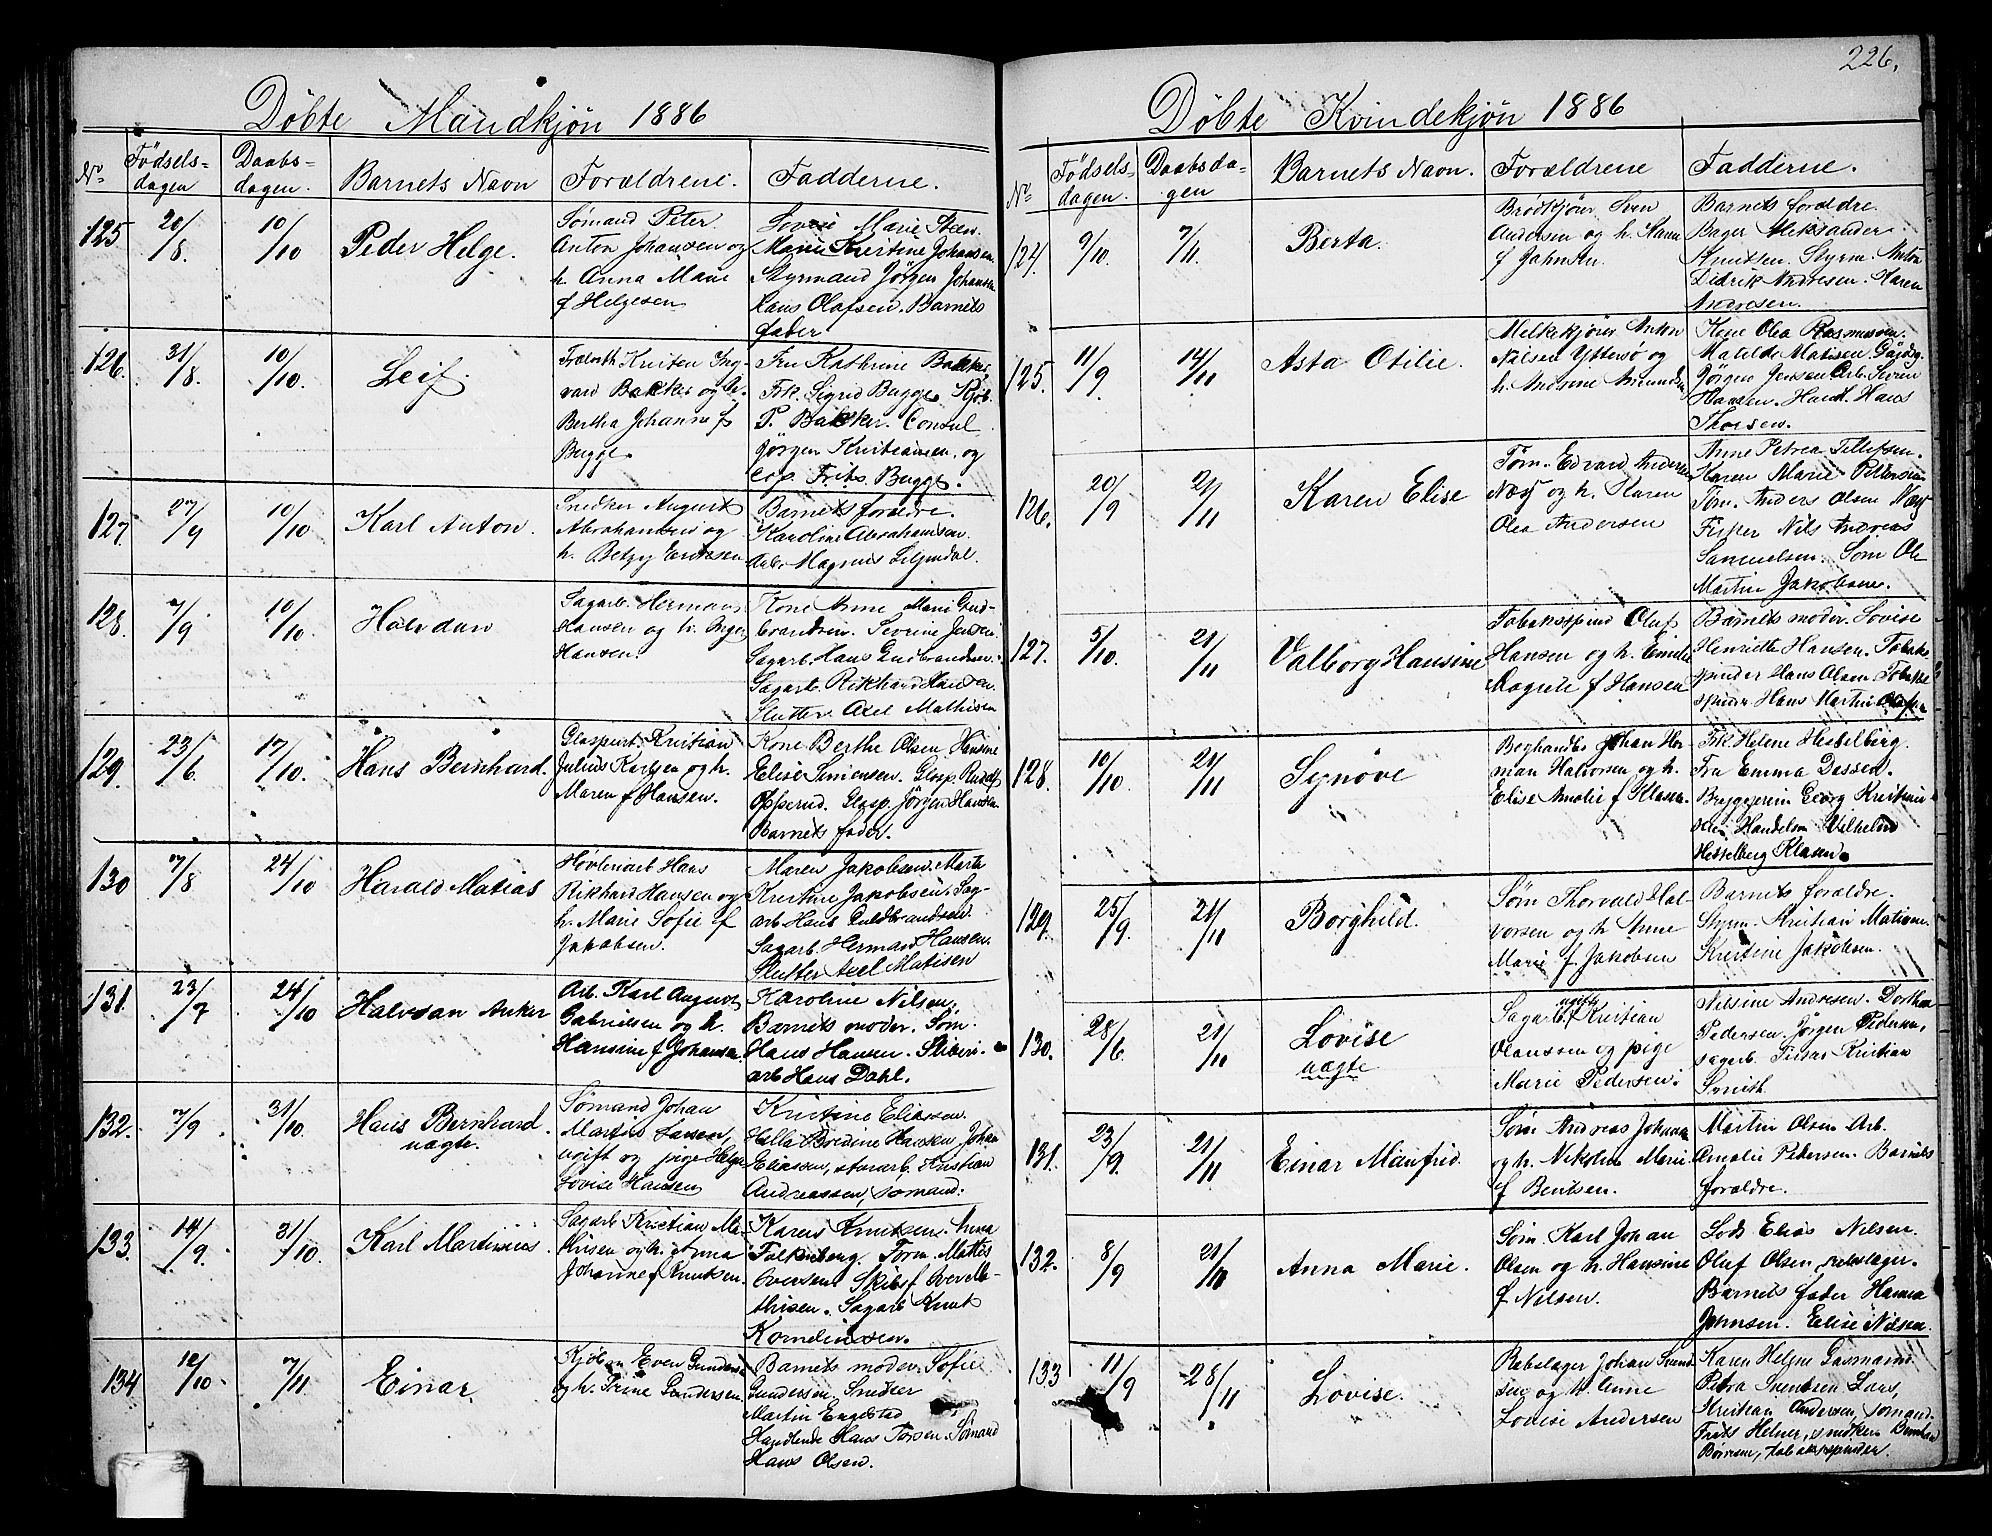 226.
Döbte Mandkjön 1886
No
Födsels=
dagen
Daabs=
dagen.
Barnets Navn
Forældrene.
Fadderne.
125
20/8
10/10
Peder Helge.
Sømand Peter
Anton Johansen og
h. Anna Marie
f Helgesen
Lovise Marie Steen.
Marie Kristine Johansen.
Styrmand Jörgen Johansen
Hans Olafsen. Barnets
fader.
126.
31/8.
10/10.
Leif.
Bakker og h.
Bertha Johanne f
Bugge.
Fru Kathrine Bakker,
Frk. Sigrid Bugge. Kjöb.
P. Bakker. Consul
Jörgen Kristiansen. og
Cop. Frits Bugge.
127.
27/9
10/10.
Karl Anton.
Snedker August
Abrahamsen og
h. Betzy Eriksen
Barnets forældre.
Karoline Abrahamsen.
Arb. Magnus Liljendal.
128.
7/9
10/10.
Halvdan
Sagarb. Herman
Hansen og h. Inge
Hansen.
Kone Anne Marie Gud-
brandsen. Sevrine Jensen
Sagarb. Hans Gudbrandsen.
Sagarb. Rikhard Hansen.
Slutter Axel Mathisen
129.
23/6
17/10.
Hans Bernhard.
Glaspust. Kristian
Julius Karlsen og h.
Maren f Hansen.
Kone Berthe Olsen. Hansine
Elise Simensen. Glasp. Rudolf
Opperud. Glasp. Jörgen Hansen.
Barnets fader.
130
7/8
24/10
Harald Matias
Høvleriarb Hans
Rikhard Hansen og
h. Marie Sofie f
Jakobsen.
Maren Jakobsen. Marte
Kristine Jakobsen. Sag-
arb Hans Guldbrandsen
Sagarb. Herman Hansen.
Slutter Axel Matisen
131.
23/7
24/10
Halvdan Anker
Arb. Karl August
Gabrielsen og h.
Hansine f Johansen
Karoline Nilsen,
Barnets moder. Søm.
Hans Hansen. Sliberi-
arb Hans Dahl.
132.
7/9
31/10.
Hans Bernhard.
uægte.
Sømand Johan
Martin Larsen,
ugift og pige Helga
Lovise Hansen
Kristine Eliassen.
Hella Bredine Hansen. Johan
Eliassen, Kristian
Andreassen, Sømand.
133.
14/9.
31/10.
Karl Martinius
Sagarb Kristian Ma-
thisen og h. Anna
Johanne f Knutsen.
Karen Knutsen. Anna
Falkenberg. Tøm. Mathis
Evensen Skibsf Even Ma-
thisen. Sagarb Knut
Kornelinssen.
134
12/10.
7/11.
Einar
Kjöbm Even Gunders
og h. Trine Gundersen
Barnets moder. Sofie
Gundersen. Snedker
Martin Engelstad
Handlende Hans Torsen. Sömand
Hans Olsen.
Döbte Kvindekjön 1886
No
Födsels=
dagen.
Daabsda-
gen
Barnets Navn.
Forældrene
Fadderne.
124.
9/10.
7/11.
Berta.
Brödkjörer Sven
Andersen og h. Karen
f Jahnsen
Barnets forældre
Bager Aleksander
Knutsen. Styrm. Anton
Didrik Andresen. Karen
Andresen.
125.
11/9
14/11
Asta Otilie.
Melkekjörer Anton
Nilsen Ytteraö og
h. Andrine Amundsen
Kone Olea Rasmussen.
Matilde Matisen. Gårdbg.
Jörgen Jensen. Arb. Severin
Hansen. Handl. Hans
Thorsen.
126.
20/9
21/11
Karen Elise
Tøm. Edvard Andersen
Næs og h. Karen
Olea Andersen
Anne Petrea Tellefsen.
Karen Marie Pettersen
Tøm. Anders Olsen Næs
Fisker Nils Andreas
Samuelsen. Søm Ole
Martin Jakobsen.
127.
5/10.
21/11
Valborg Hansine
Tobakspind Oluf
Hansen og h. Emilie
Magrete f Hansen
Barnets moder. Lovise
Henriette Hansen. Tobaks-
spinder Hans Olsen. Tobaks
spinder Hans Martin Olafsen
128.
10/10.
21/11
Synöve
Boghandler Johan Her-
man Halvorsen og h.
Elise Amalie f Klasen.
Frk. Helene Hesselberg.
Fru Emma Dessen.
Bryggerieier Georg Kristian-
sen. Handelsm Vilhelm
Hesselberg Klasen.
129.
25/9.
21/11
Borghild.
Søm Thorvald Hal-
vorsen og h Anne
Marie f Jakobsen
Barnets forældre.
Styrm. Kristian Matisen.
Kristine Jakobsen.
130.
28/6
21/11
Lovise
uægte
Sagarb. ugift Kristian
Olaussen og pige
Marie Pedersen.
Nilsine Andresen. Dorthea
Pedersen. Jörgen Pedersen,
sagarb. Kristian
Smith.
131.
23/9.
21/11
Einar Manfrid.
Søm Andreas Johansen
og h. Nikoline Marie
f Bentsen.
Martin Olsen Arb.
Amalie Pedersen. Barnets
forældre.
132.
8/9
21/11
Anna Marie.
Søm Karl Johan
Olsen og h. Hansine
f Nilsen.
Lods Elias Nilsen.
Oluf Olsen, rebslager.
Barnets fader Hanna
Johnsen. Elise Nilsen.
133
11/9
28/11
Lovise.
Rebslager Johan Svend
sen og h Anne
Lovise Andersen
Karen Helene Gasmand
Petra Svendsen Lars,
Kristian Andersen, Sömand.
Frits Helner, snedker.
Børresen, tobakspinder.